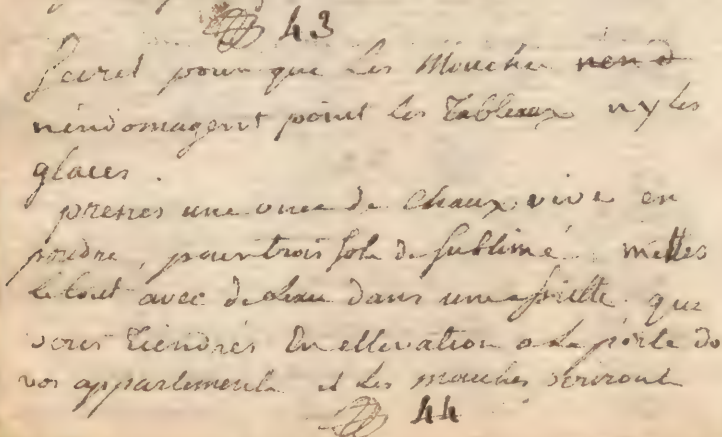 43
Secret pour que les Mouche nen d
n'endomagent point les Tableaux ny les
glaces.
prenes une once de Chaux vive en
poudre, pour trois sols de sublimé. mettes
le tout avec de leau dans une que
vous tiendrés En ellevation a la porte de
vos appartement et les mouches
44